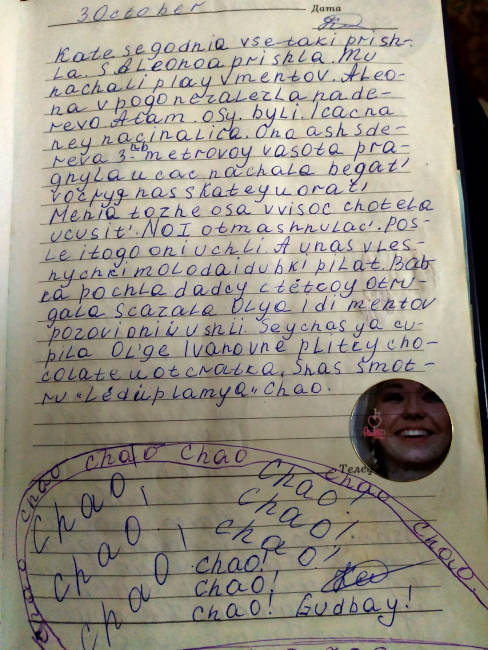 3 October
Дата
Kate segodnia vse taki prish-
la. S Aleonoa prishla. My
nachali play v mentov. Aleo-
na v pogone zalezla na de-
revo. A tam osy byli. I cac na
ney nacinalica. Ona ash s de-
reva 3-nb metrovoy vasota pra-
gnyla u cac nachala begat'
vocryg nas s kateyu orat'
Menia tozhe osa v visoc chotela
ucusit'. NO I otmashnulac'. Pos-
le itogo oni uchli. A u nas v les-
nychki molodai dubki pilat. Bab-
ka pochla dadcy c tëtcoy otru-
gala scazala Olya Idi mentov
pozovi oni i ushli. Seychas ya cu-
pila Ol'ge Ivanovne plitky cho-
colate u otcratka. Snas smot-
ru "Lëd u plamya" Chao.
Телеф
chao chao chao chao chao
chao
chao! chao!
chao! chao!
chao! chao!
chao!
chao!
chao! Gudbay!